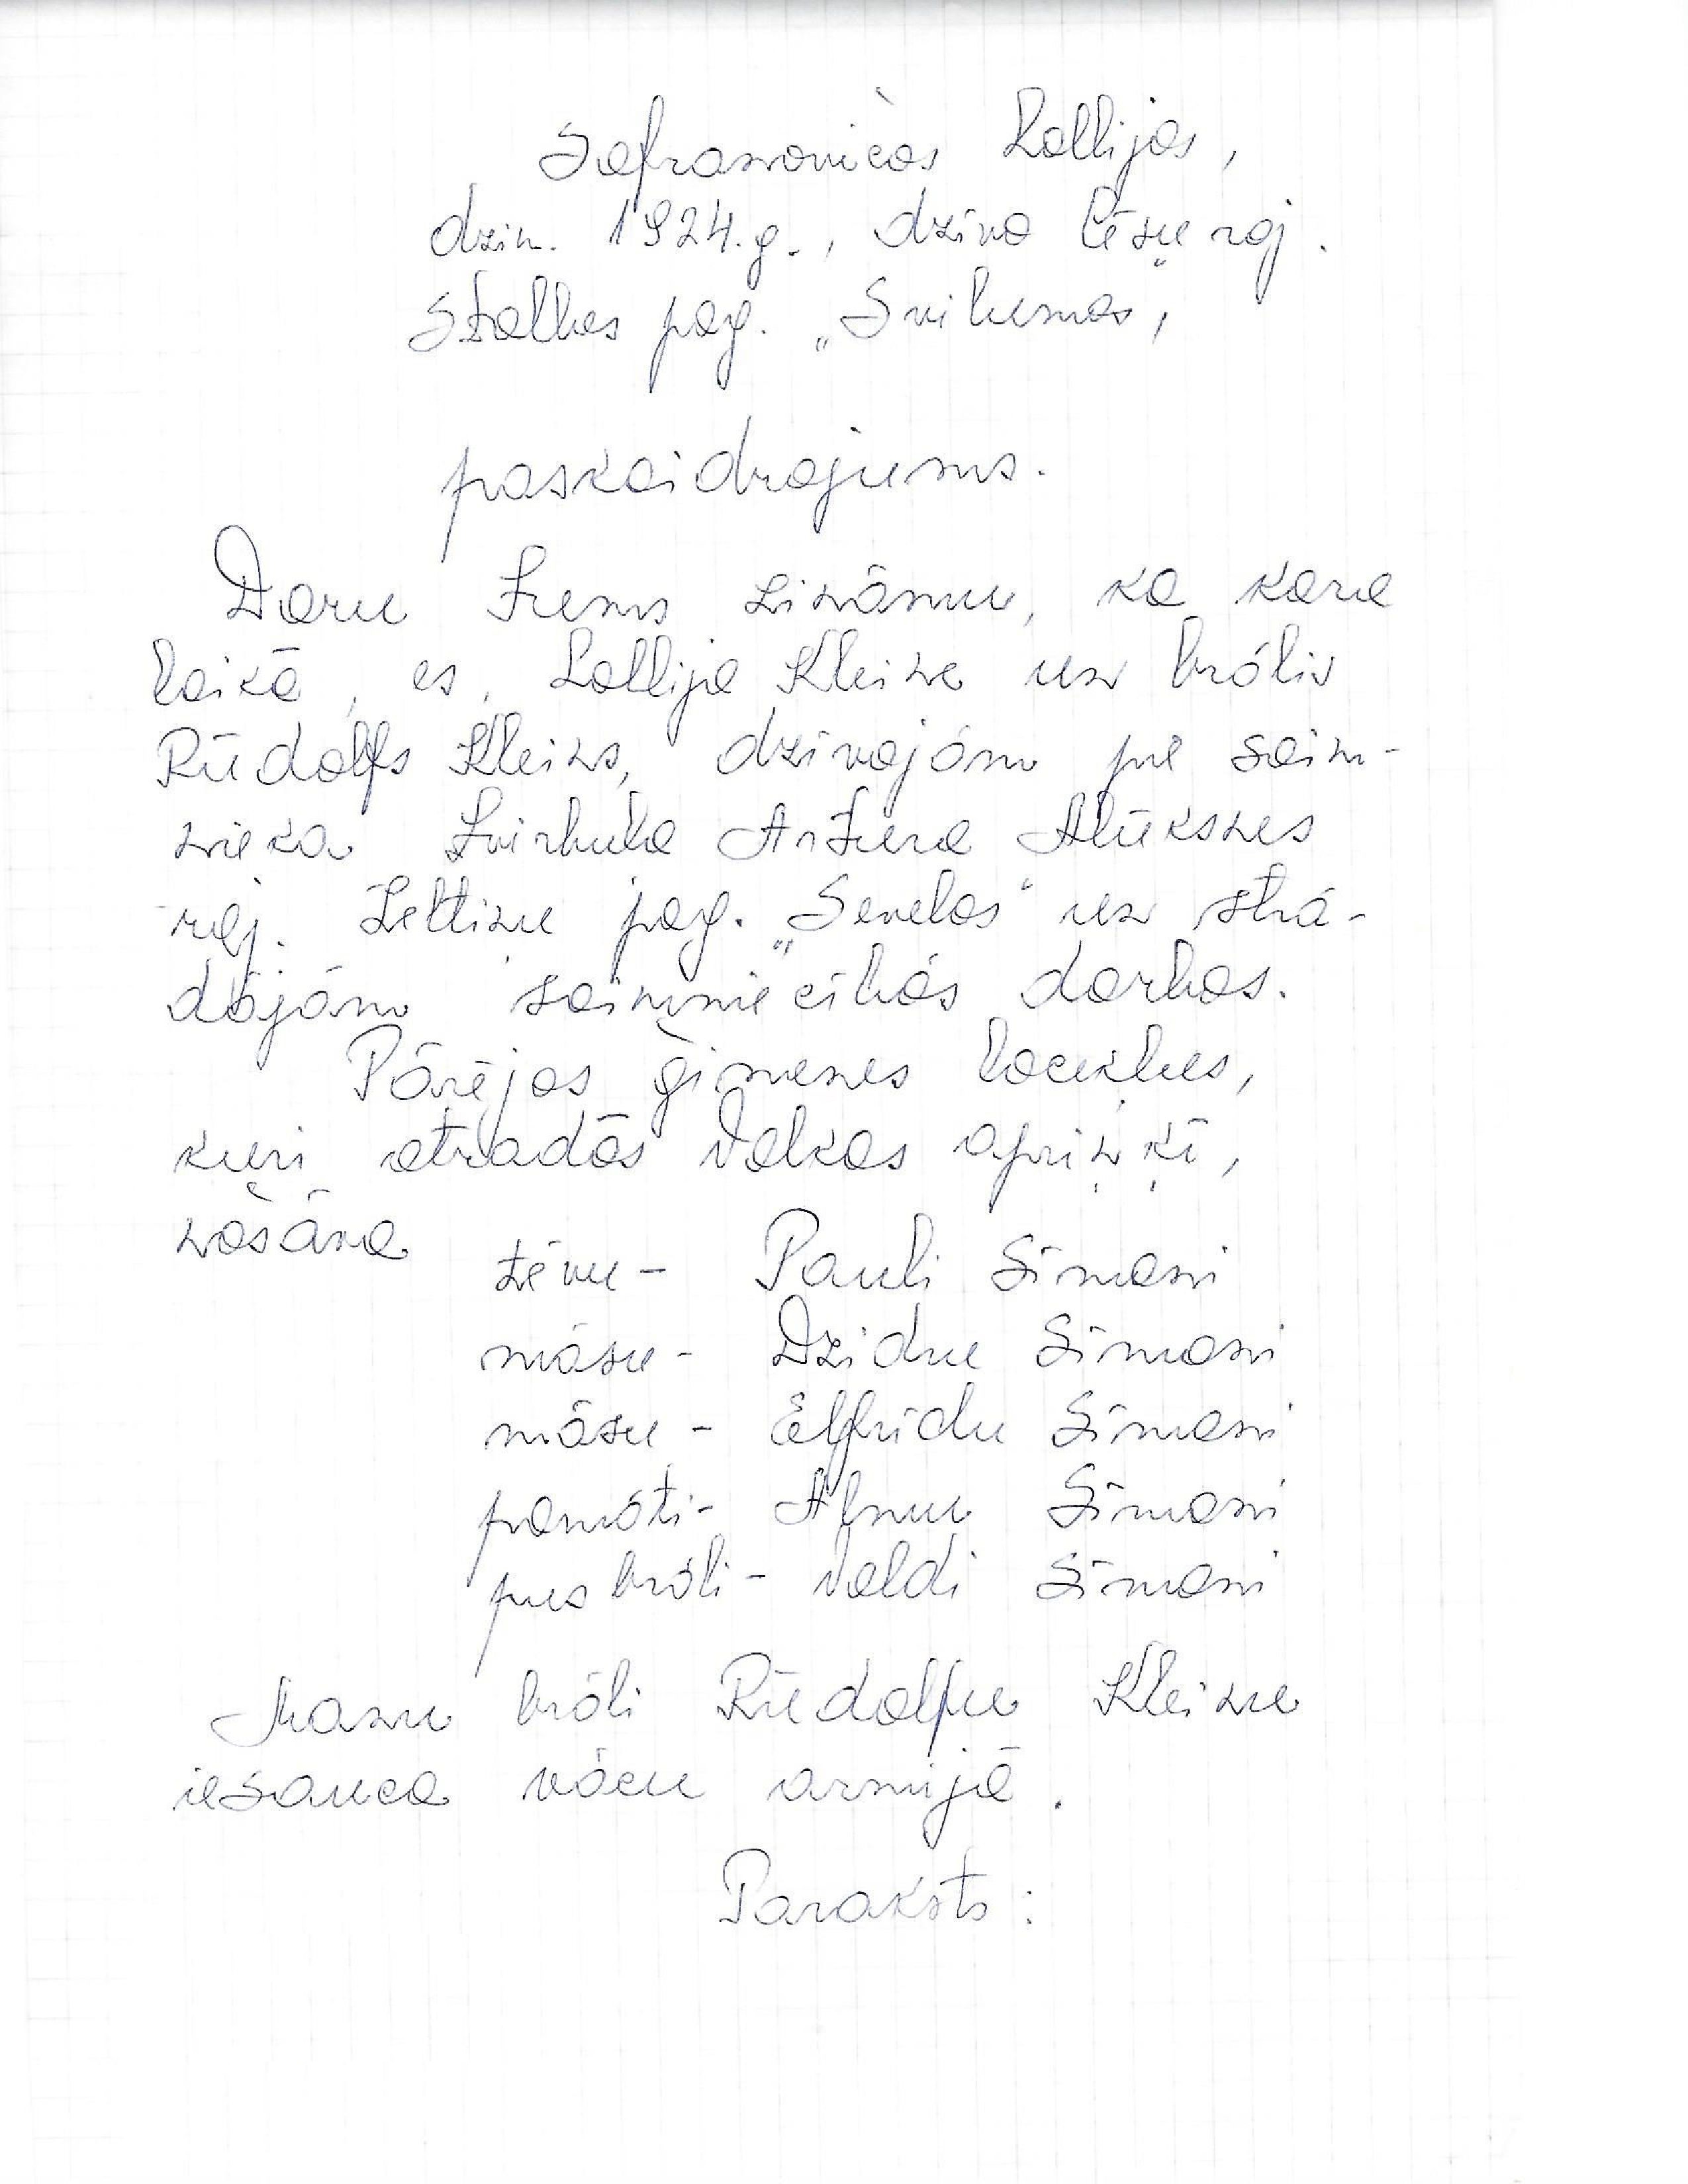 Safranovičas Lollijas,
dzim. 1924.g., dzīvo Cēsu raj.
Stalbes pag. „Svikumos,
paskaidrojums.
Daru Jums zināmu, ka kara
laikā, es, Lollija Kleina un brālis
Rūdolfs Kleins, dzīvojām pie saim-
nieka Zvirbuļa Artura Alūksnes
raj. Zeltiņu pag. „Sevelos" un strā-
dājām saimniecības darbos.
Pārējos ģimenes locekļus,
kuŗi atradās Valkas apriņķī,
nošāva
tēvu - Pauli Sīmani
māsu - Dzidru Sīmani
māsu - Elfrīdu Sīmani
pamāti - Almu Sīmani
pusbrāli - Valdi Sīmani
Manu brāli Rūdolfu Kleinu
iesauca vācu armijā.
Paraksts: